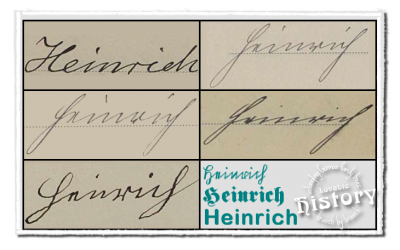 Heinrich
Heinrich
Heinrich
Heinrich
Heinrich
Heinrich
Heinrich
Heinrich
Lunatic
history